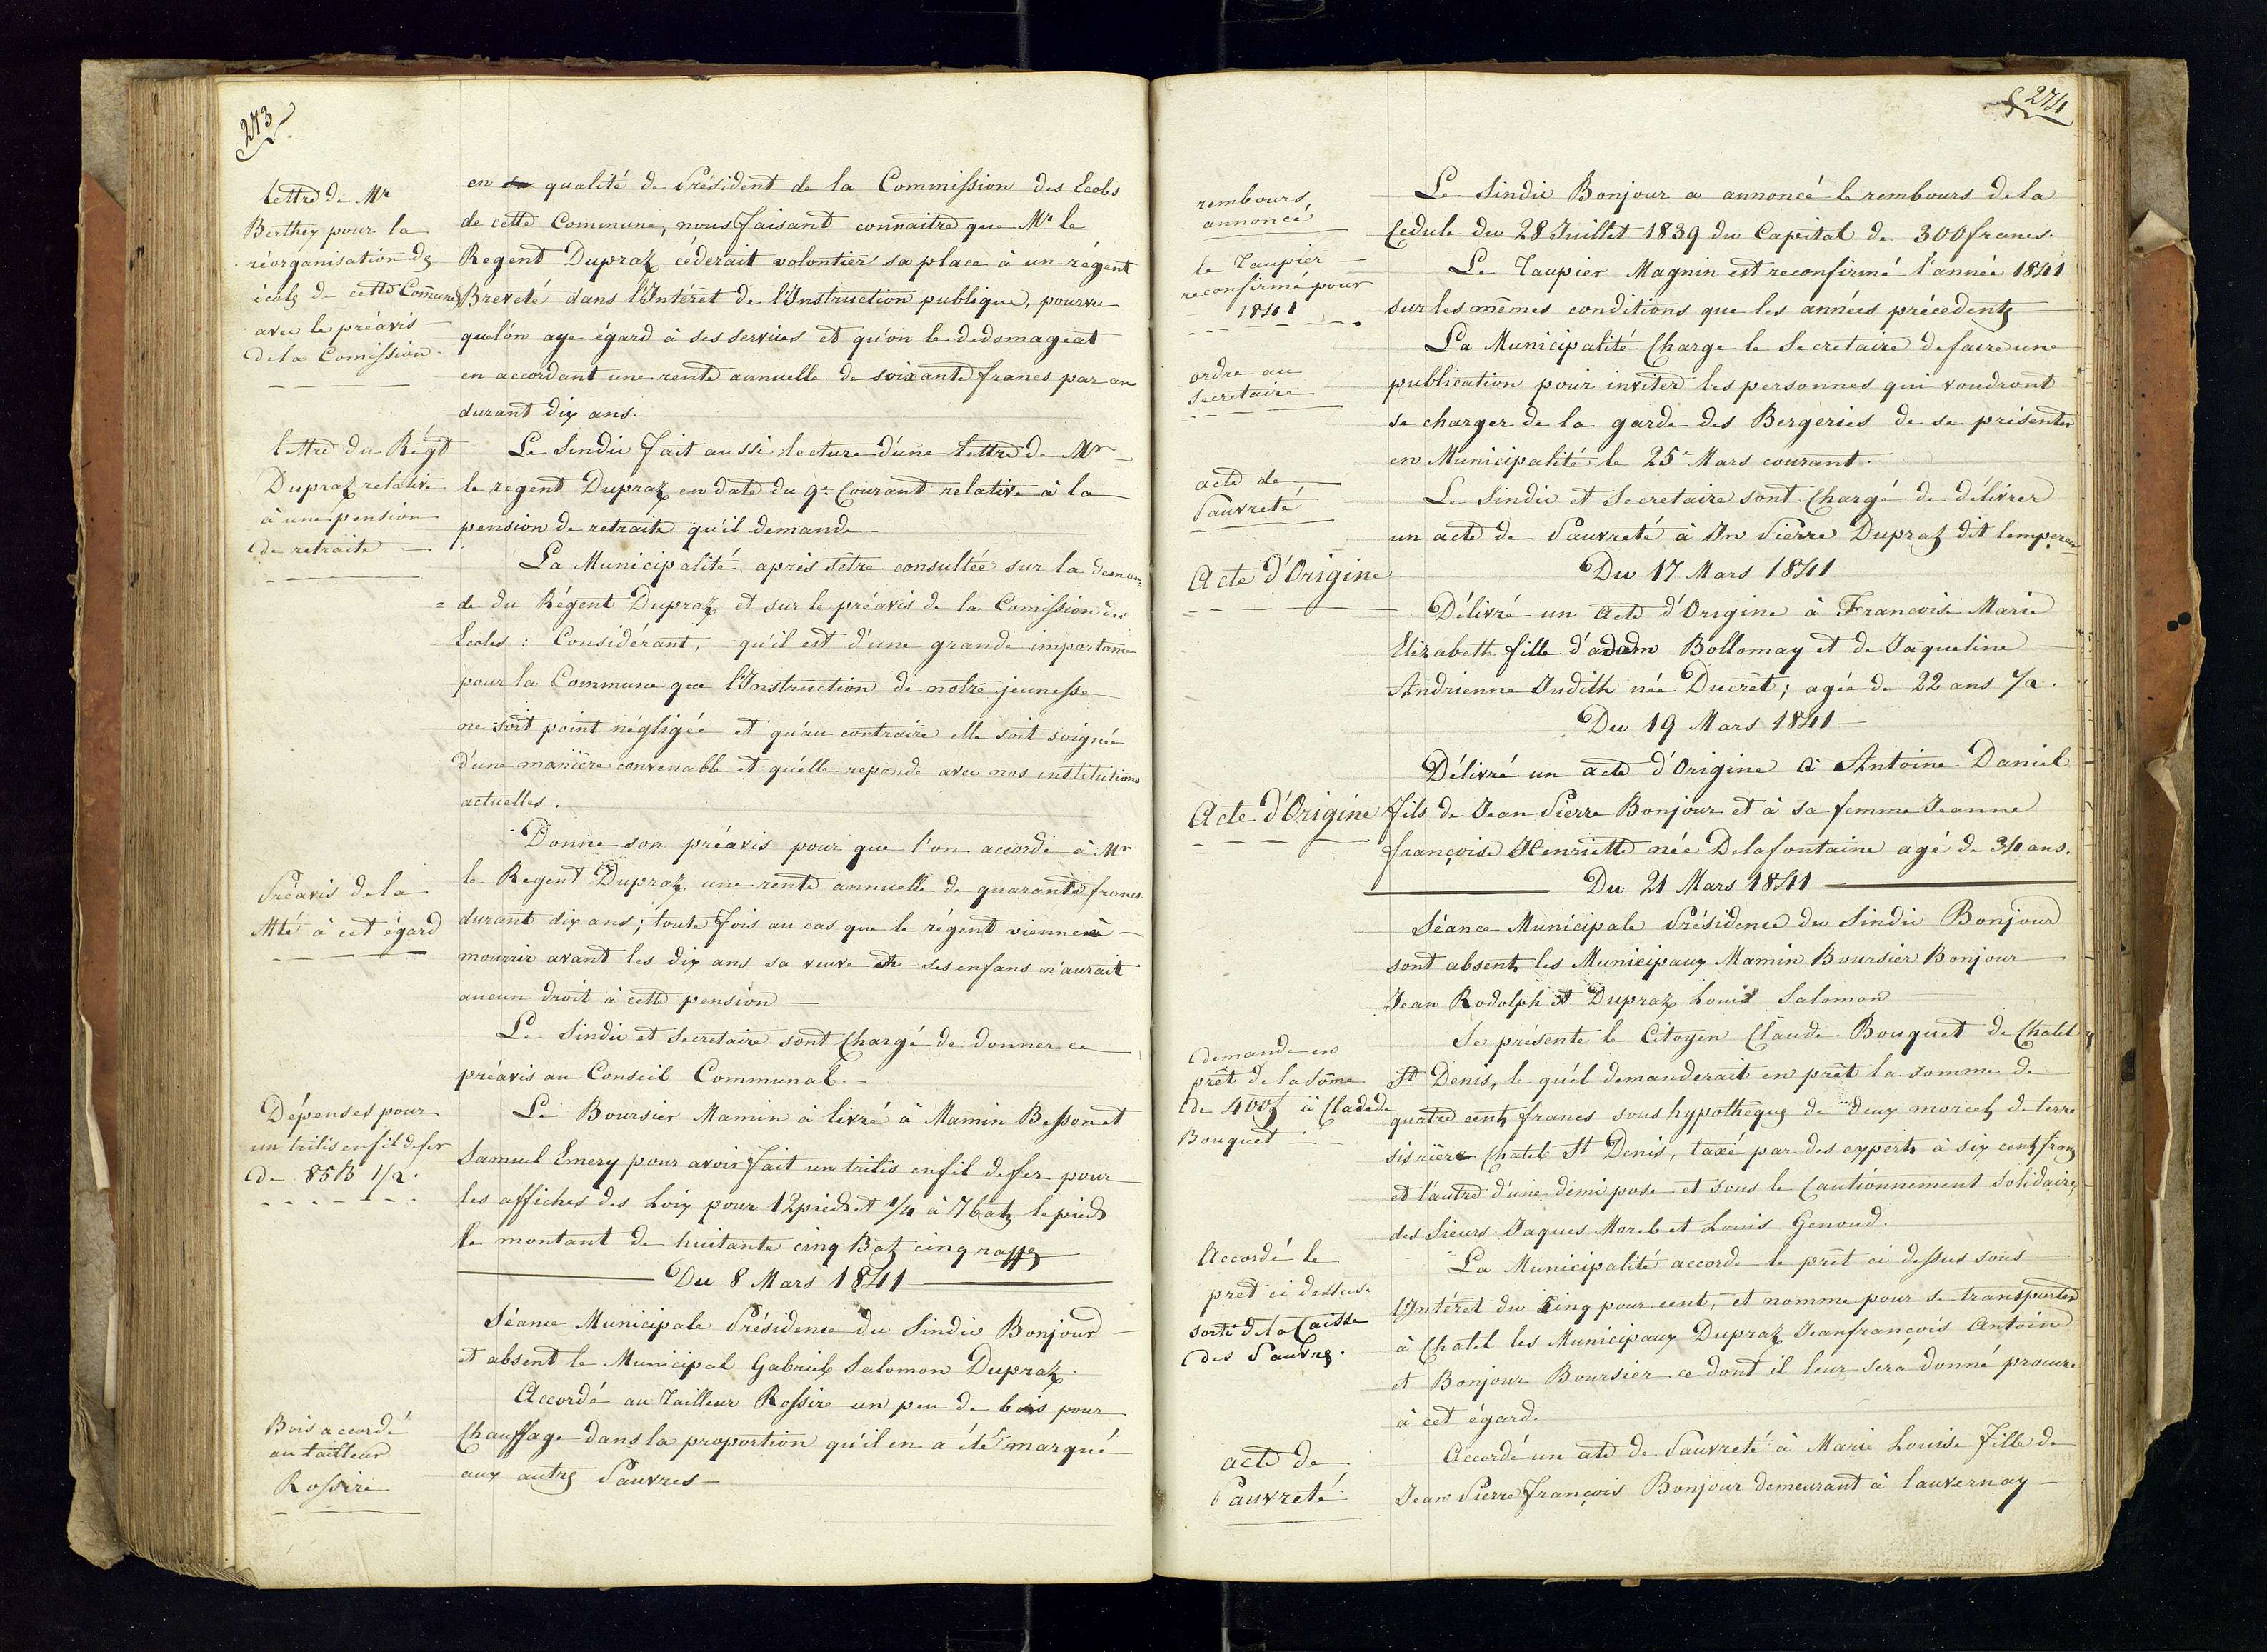 273
lettre de Mr
Berthey pour la
réorganisation des
écols de cette Comune
avec le préavis
de la Comission
en qualité de Président de la Commission des Ecoles
de cette Commune, nous faisant connaitre que Mr le
Regent Dupraz céderait volontier sa place à un régent
Breveté dans l'Intéret de l'Instruction publique, pourvu
quel'on aye égard à ses services et qu'on le dedomageat
en accordant une rente annuelle de soixante francs par an
durant dix ans.
lettre du Régt
Dupraz relative
à une pension
de retraite
Le Sindic fait aussi lecture d'une lettre de Mr
le regent Dupraz en date du 9e Courant relative à la
pension de retraite qu'il demande
La Municipalité après s'etre consultée sur la deman=
=de du Régent Dupraz et sur le préavis de la Comission des
Ecoles : Considérant, qu'il est d'une grande importance
pour la Commune que l'Instruction de notre jeunesse
ne soit point négligée et qu'au contraire elle soit soignée
d'une manière convenable et qu'elle reponde avec nos institutions
actuelles.
Préavis de la
Mté à cet égard
Donne son préavis pour que l'on accorde à Mr
le Regent Dupraz une rente annuelle de quarante francs
durant dix ans; toute fois au cas que le régent vienne à
mourrir avant les dix ans sa veuve et ses enfans n'aurait
aucun droit à cette pension
Le Sindic et Secretaire sont Chargé de donner ce
préavis au Conseil Communal.
Dépenses pour
un trilis en fil de fer
de 85 B 1/2.
Le Boursier Mamin à livré à Mamin Besson et
Samuel Emery pour avoir fait un trilis en fil de fer pour
les affiches des Loix pour 12 pieds et 1/4 à 7 batz le pied
le montant de huitante cinq Baz cinq rapps
Du 8 Mars 1841
Séance Municipale Présidence du Sindic Bonjour
et absent le Municipal Gabriel Salomon Dupraz
Bois accordé
au tailleur
Rossire
Accordé au Tailleur Rossire un peu de bois pour
Chauffage dans la proportion qu'il en a été marqué
aux autres Pauvres
274
rembours
annoncé
Le Sindic Bonjour a annoncé le rembours de la
Cedule du 28 Juillet 1839 du Capital de 300 francs.
le Taupier
reconfirmé pour
1841
Le Taupier Magnin est reconfirmé l'année 1841
sur les mêmes conditions que les années précédents
ordre au
Secretaire
La Municipalité Charge le Secretaire de faire une
publication pour inviter les personnes qui voudront
se charger de la garde des Bergeries de se présenter
en Municipalité le 25e Mars courant.
acte de
Pauvreté
Le Sindic et Secretaire sont Chargé de délivrer
un acte de Pauvreté à Jn Pierre Dupraz dit lempereur
Du 17 Mars 1841
Acte d'Origine
Délivré un Acte d'Origine à Francoise Marie
Elizabeth fille d'adam Bollomay et de Jaqueline
Andrienne Judith née Ducret; agée de 22 ans 1/2.
Du 19 Mars 1841
Acte d'Origine
Délivré un acte d'Origine à Antoine Daniel
fils de Jean Pierre Bonjour et à sa femme Jeanne
françoise Henriette née Delafontaine agé de 34 ans.
Du 21 Mars 1841
Séance Municipale Présidence du Sindic Bonjour
sont absents les Municipaux Mamin Boursier Bonjour
Jean Rodolph et Dupraz Louis Salomon
demande en
prêt de la some
de 400f à Clade de
Bouquet
Se présente le Citoyen Claude Bouquet de Chatel
St Denis, le quel demanderait en prêt la somme de
quatre cents francs sous hypothèques de deux morcels de terre
sis rière Chatel St Denis, taxé par des experts à six cents frans
et l'autre d'une demi pose et sous le Cautionnement Solidaire,
des Sieurs Jaques Morel et Louis Genoud.
Accordé le
pret ci dessus
sorti de la Caisse
des Pauvres.
La Municipalité accorde le prêt ci dessus sous
l'Intéret du Cinq pour cent, et nomme pour se transporter
à Chatel les Municipaux Dupraz Jeanfrançois Antoine
et Bonjour Boursier ce dont il leur sera donné procure
à cet égard.
acte de
Pauvreté
Accordé un ate de Pauvreté à Marie Louise fille de
Jean Pierre François Bonjour demeurant à lauvernay